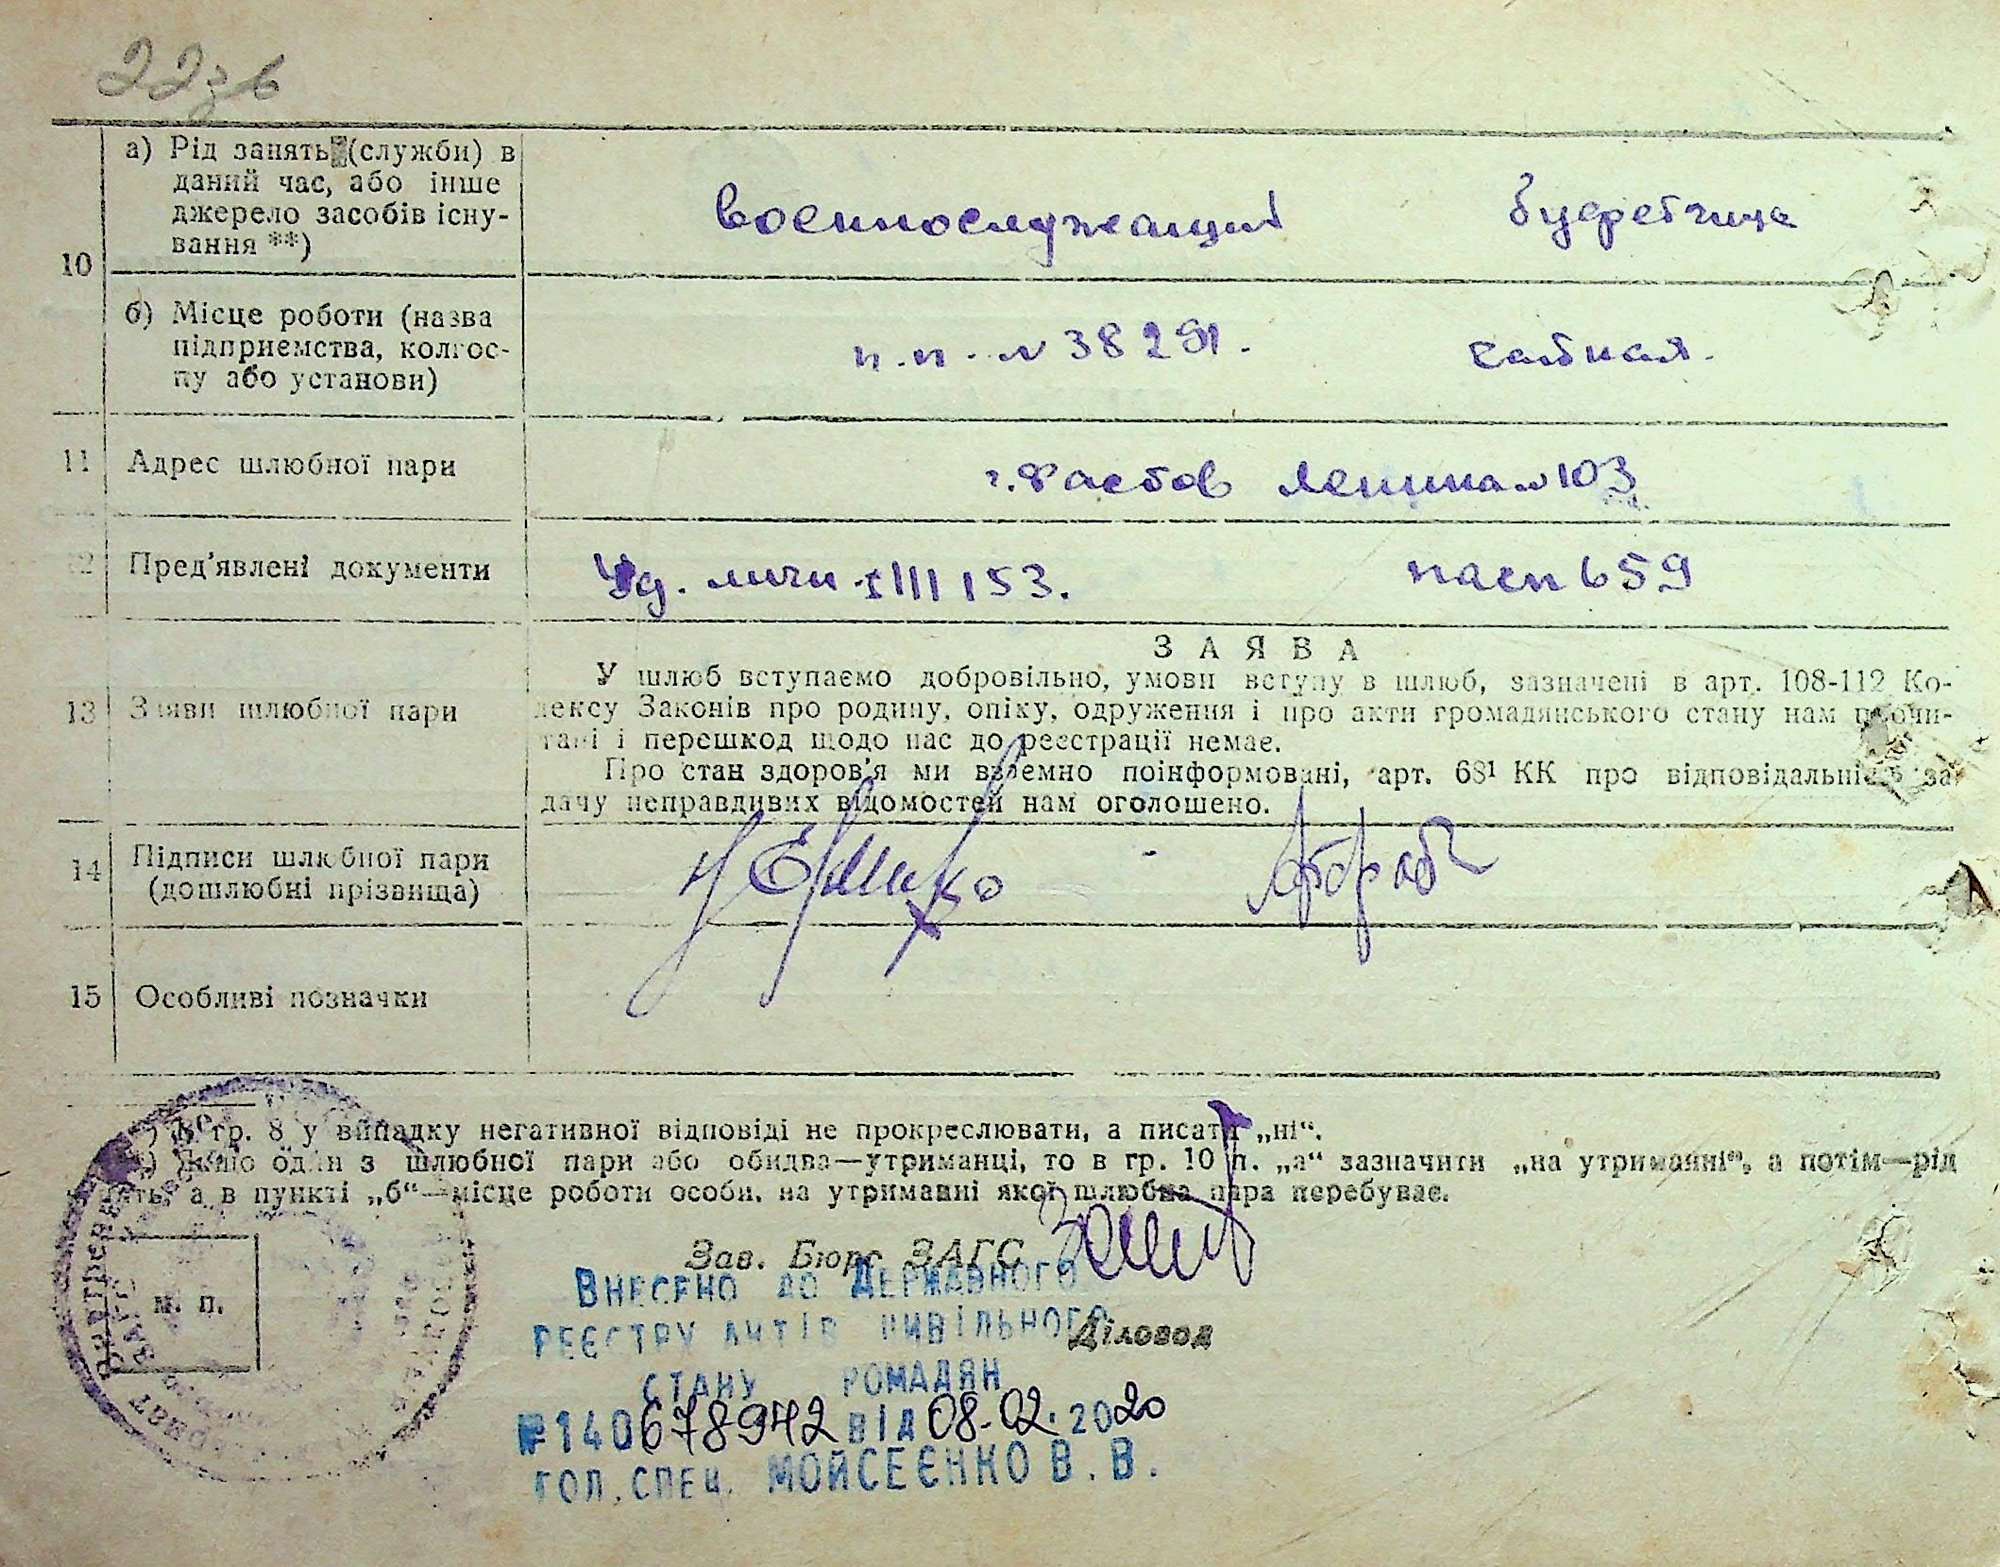 22 зв
10
а) Рід занять (служби) в
даний час, або інше
джерело засобів існу-
вання **)
военнослужащий буфетчица
б) Місце роботи (назва
підприємства, колгос-
пу або установи)
п.п. № 38291. чайная.
11 Адрес шлюбної пари
г. Фастов Ленина № 103
12 Пред'явлені документи
Уд. личн 153. пасп 659
13 Заяви шлюбної пари
ЗАЯВА
У шлюб вступаємо добровільно, умови вступу в шлюб, зазначені в арт. 108-112 Ко-
дексу Законів про родину, опіку, одруження і про акти громадянського стану нам прочи-
тані і перешкод щодо нас до реєстрації немає.
Про стан здоров'я ми взаємно поінформовані, арт. 68¹ КК про відповідальність за
дачу неправдивих відомостей нам оголошено.
14 Підписи шлюбної пари
(дошлюбні прізвища)
15 Особливі позначки
*) В гр. 8 у випадку негативної відповіді не прокреслювати, а писати „ні“.
**) Якщо один з шлюбної пари або обидва—утриманці, то в гр. 10 п. „а“ зазначити „на утриманні“, а потім—рід
занять, а в пункті „б“—місце роботи особи, на утриманні якої шлюбна пара перебуває.
м. п.
Зав. Бюро ЗАГС
Діловод
ВНЕСЕНО ДО ДЕРЖАВНОГО
РЕЄСТРУ АКТІВ ЦИВІЛЬНОГО
СТАНУ РОМАДЯН
№140678942 ВІД 08.02.2020
ГОЛ.СПЕЦ. МОЙСЕЄНКО В.В.